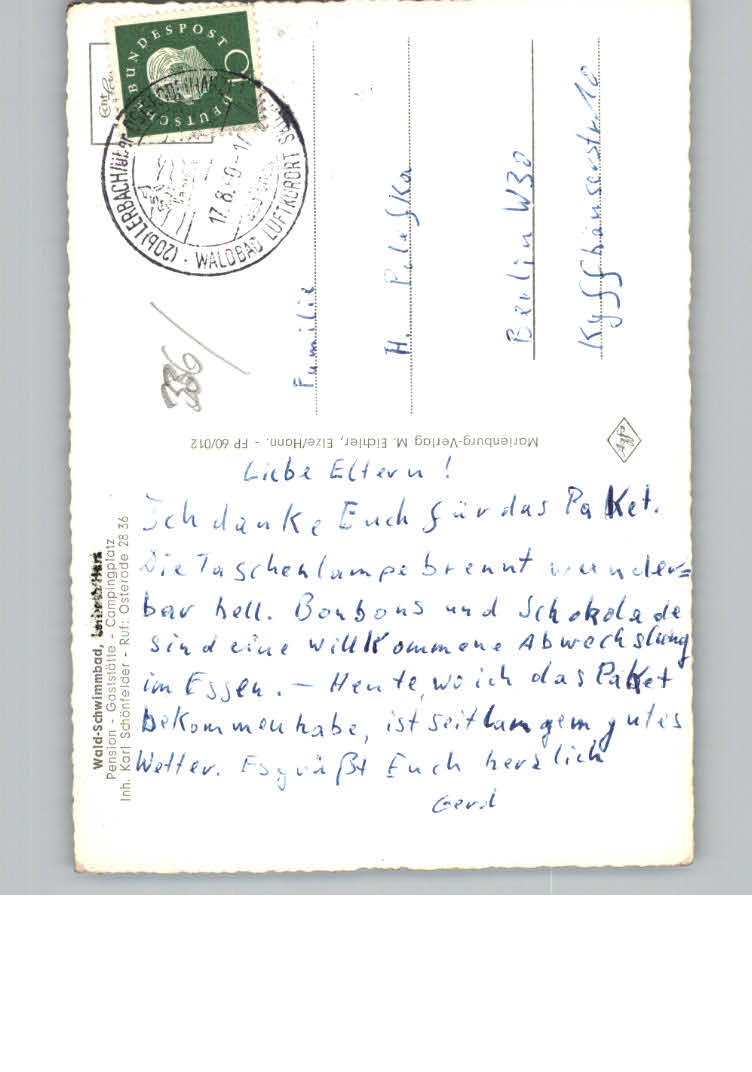 Liebe Eltern!
Ich danke Euch für das Paket.
Die Taschenlampe brennt wunder=
bar hell. Bonbons und Schokolade
sind eine willkommene Abwechslung
im Essen. – Heute, wo ich das Paket
bekommen habe, ist seit langem gutes
Wetter. Es grüßt Euch herzlich
Gerd
Familie
H. Poleska
Berlin W30
Kyffhäuserstr. 10
336
DEUTSCHE BUNDESPOST
(20b) LERBACH/über
WALDBAD LUFTKURORT
17.8.60-17
Marienburg-Verlag M. Eichler, Elze/Hann. - FP 60/012
Wald-Schwimmbad,
Pension - Gaststätte - Campingplatz
Inh. Karl Schönfelder - Ruf: Osterode 28 36